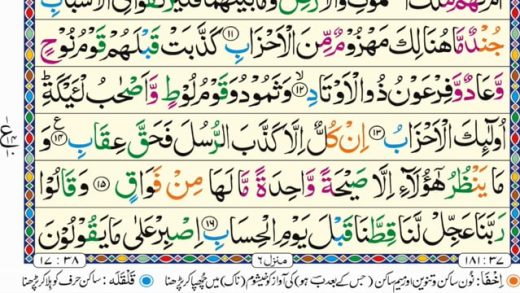 جُنْدٌ مَّا هُنَالِكَ مَهْزُوْمٌ مِّنَ الْاَحْزَابِ ﴿۱۱﴾ كَذَّبَتْ قَبْلَهُمْ قَوْمُ نُوْحٍ
وَّعَادٌ وَّفِرْعَوْنُ ذُو الْاَوْتَادِ ﴿۱۲﴾ وَثَمُوْدُ وَقَوْمُ لُوْطٍ وَّاَصْحٰبُ لْـَٔيْكَةِ ؕ
اُولٰٓئِكَ الْاَحْزَابُ ﴿۱۳﴾ اِنْ كُلٌّ اِلَّا كَذَّبَ الرُّسُلَ فَحَقَّ عِقَابِ ﴿۱۴﴾ ع وَ
مَا يَنْظُرُ هٰٓؤُلَآءِ اِلَّا صَيْحَةً وَّاحِدَةً مَّا لَهَا مِنْ فَوَاقٍ ﴿۱۵﴾ وَقَالُوْا
رَبَّنَا عَجِّلْ لَّنَا قِطَّنَا قَبْلَ يَوْمِ الْحِسَابِ ﴿۱۶﴾ اِصْبِرْ عَلٰى مَا يَقُوْلُوْنَ
۳۷ : ۱۸۱ منزل ۶ ۳۸ : ۱۷
اِخفَا: نُون ساکن و تنوین اور میم ساکن (جس کے بعد ب ہو) کی آواز کو خیشوم (ناک) میں چُھپا کر پڑھنا قَلقَلَہ: ساکن حرف کو ہلا کر پڑھنا